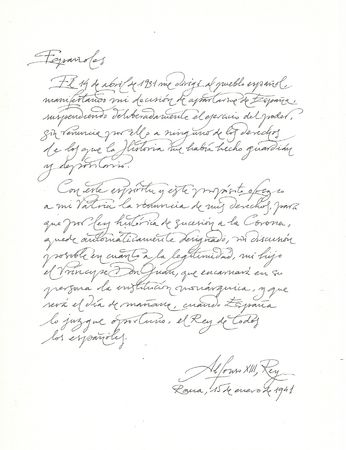 Españoles
El 14 de abril de 1931 me dirigí al pueblo español
manifestando mi decisión de apartarme de España,
suspendiendo deliberadamente el ejercicio del poder,
sin renuncia por ello a ninguno de los derechos
de los que la Historia me había hecho guardián
y depositario.
Con este espíritu y este propósito ofrezco
a mi Patria la renuncia de mis derechos para
que por ley histórica de sucesión a la Corona,
quede automáticamente designado, sin discusión
posible en cuanto a la legitimidad, mi hijo
el Príncipe Don Juan, que encarnará en su
persona la institución monárquica, y que
será el día de mañana, cuando España
lo juzgue oportuno, el Rey de todos
los españoles.
Alfonso XIII, Rey
Roma, 15 de enero de 1941